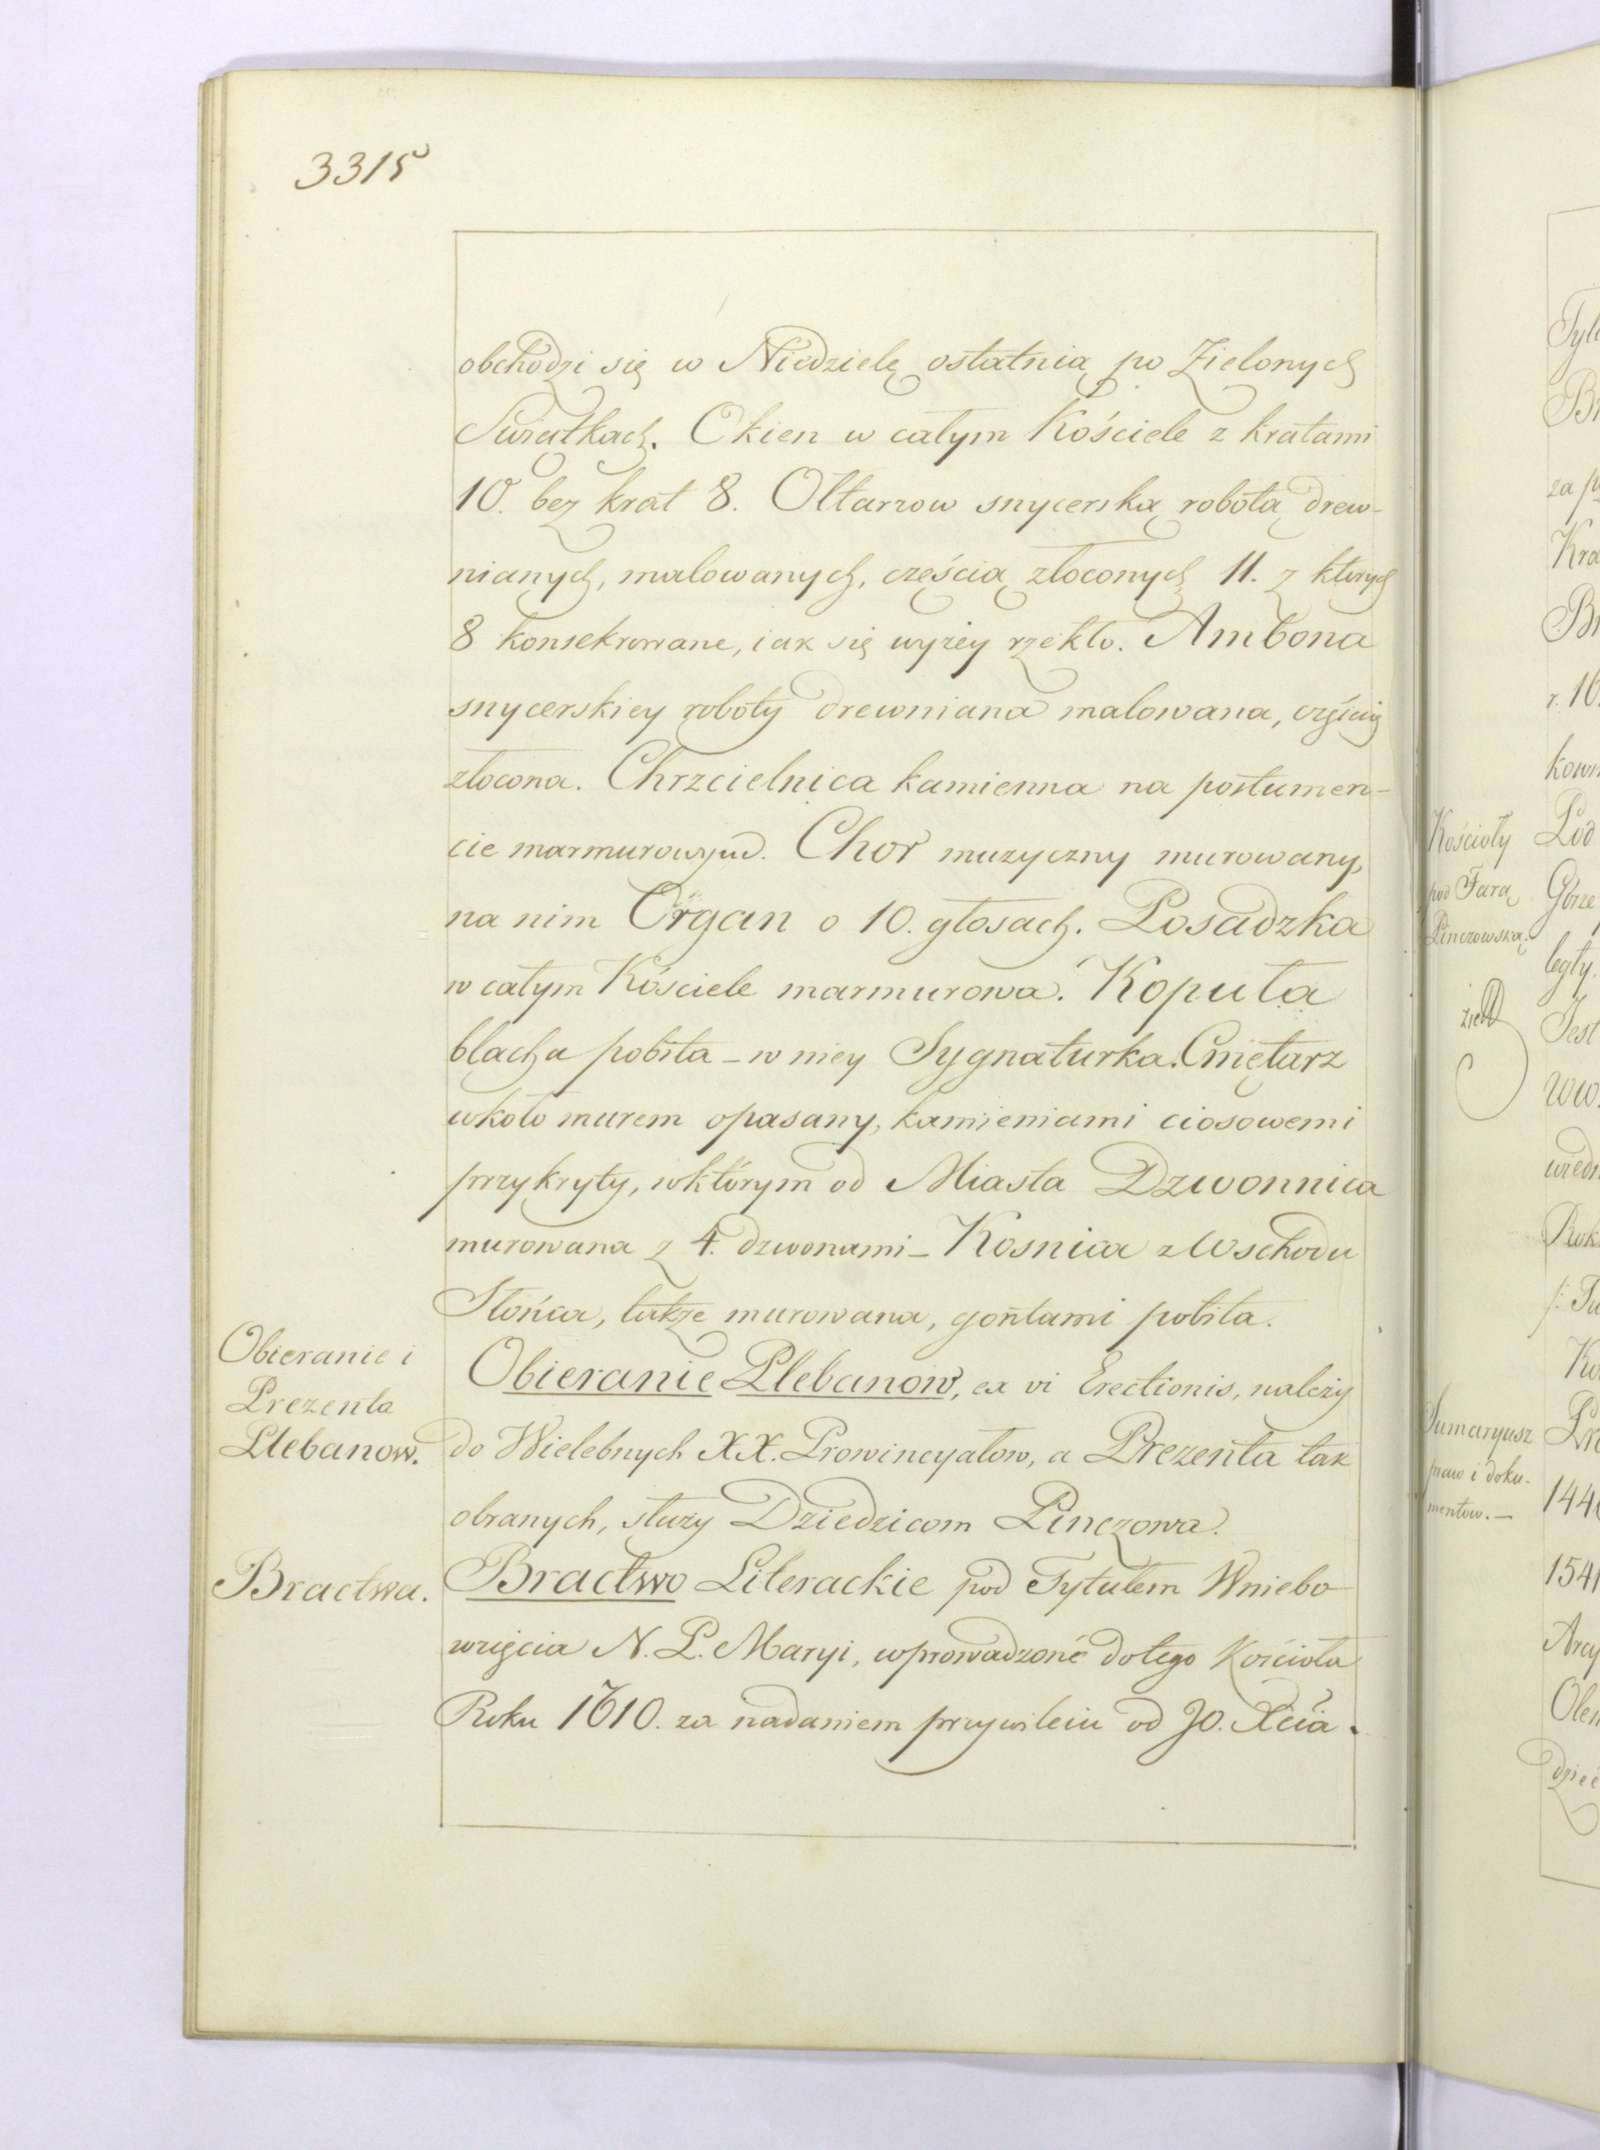 3315
obchodzi się w Niedzielę ostatnią po Zielonych
Swiątkach. Okien w całym Kościele z kratami
10. bez krat 8. Ołtarzow snycerską robotą drew-
nianych, malowanych, częścią złoconych 11. z ktorych
8 konsekrowane, iak się wyżey rzekło. Ambona
snycerskiey roboty drewniana malowana, częścią
złocona. Chrzcielnica kamienna na postumen-
cie marmurowym. Chor muzyczny murowany,
na nim Organ o 10. głosach. Posadzka
w całym Kościele marmurowa. Kopuła
blachą pobita – w niey Sygnaturka. Cmętarz
wkoło murem opasany, kamieniami ciosowemi
przykryty, wktórym od Miasta Dzwonnica
murowana z 4. dzwonami – Kosnica z Wschodu
Słońca, także murowana, gontami pobita.
Obieranie i
Prezenta
Plebanow.
Obieranie Plebanow, ex vi Erectionis, należy
do Wielebnych XX. Prowincyałow, a Prezenta tak
obranych, służy Dziedzicom Pinczowa.
Bractwa.
Bractwo Literackie pod Tytułem Wniebo-
wzięcia N. P. Maryi, wprowadzoné do tego Kościoła
Roku 1610. za nadaniem przywileiu od JO. Xcia.
Kościoły
pod Farą
Pinczowską.
Sumaryusz
praw i doku-
mentow. –
za
Kra
r. 16
kown
Pod
Górze
legły.
Jest
wiedn
Rok
144
1541
Arcy